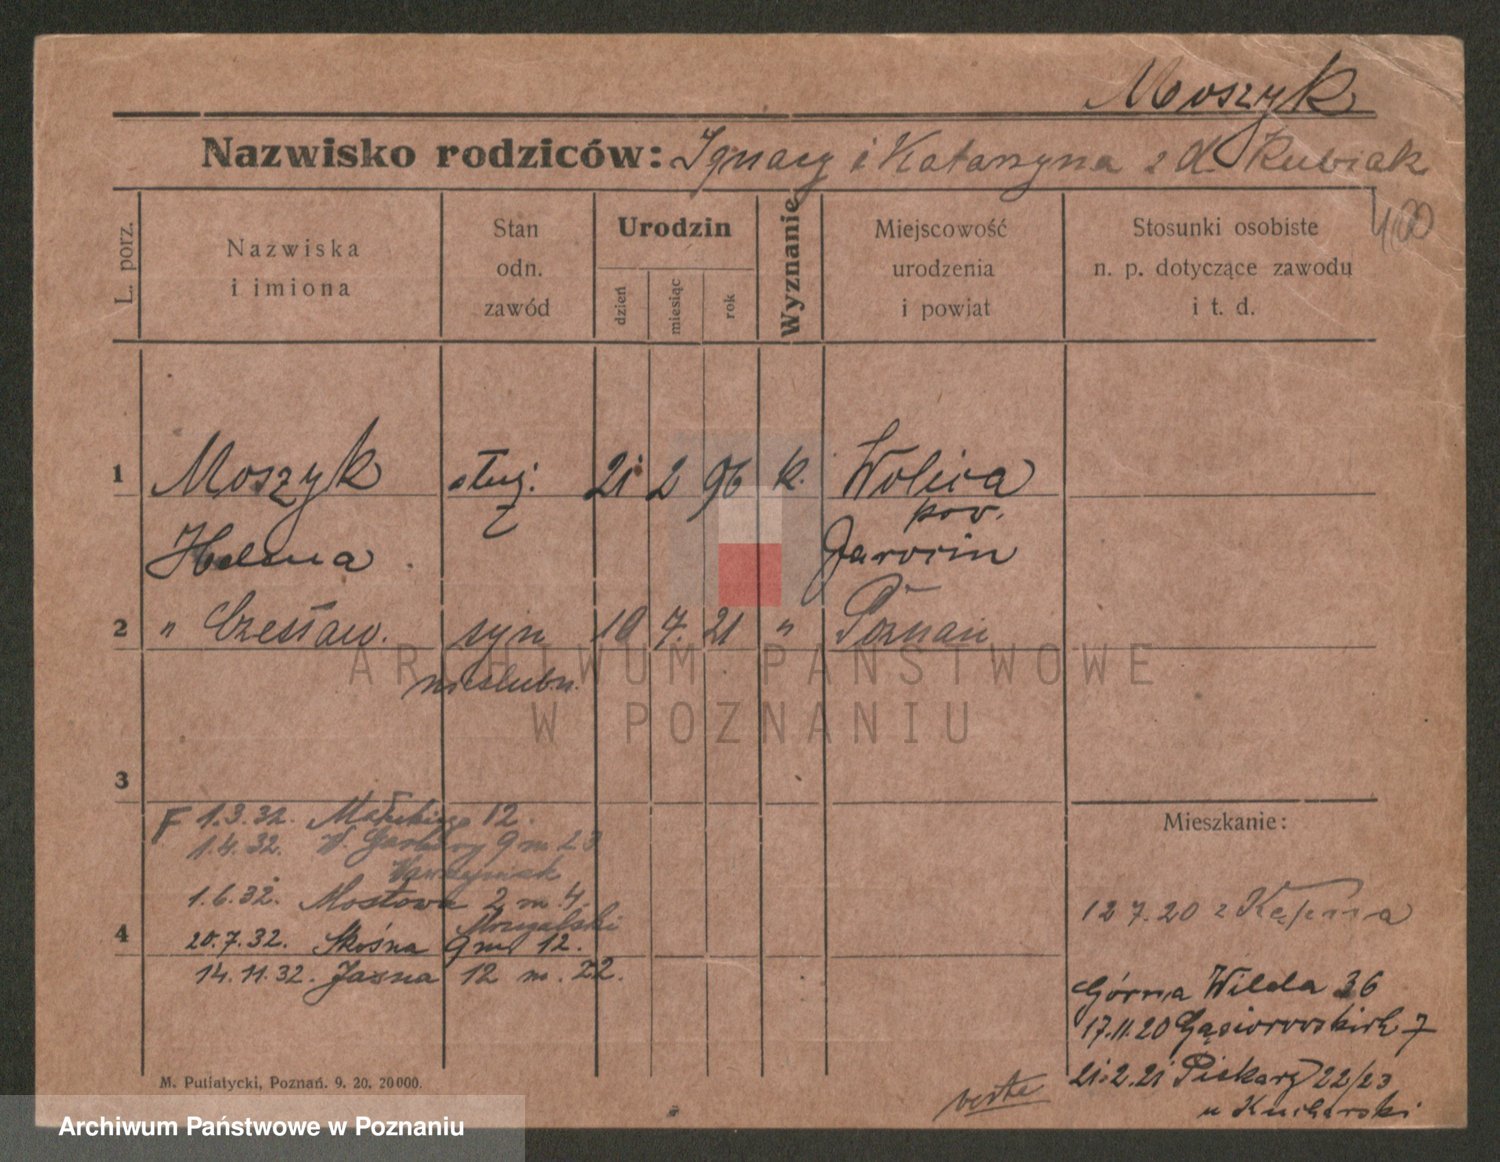 Moszyk
Nazwisko rodziców: Ignacy i Katarzyna z d. Kubiak
400
L. porz.
Nazwiska
i imiona
Stan
odn.
zawód
Urodzin
dzień
miesiąc
rok
Wyznanie
Miejscowość
urodzenia
i powiat
Stosunki osobiste
n. p. dotyczące zawodu
i t. d.
1 Moszyk służ. 21 2 96 k. Wolica
pow.
Helena Jarocin
2 " Czesław. syn 10 7. 21 " Poznań
nieślubn.
ARCHIWUM PAŃSTWOWE
W POZNANIU
3
F 1.3.32. Małeckiego 12.
1.4.32. W. Garbary 9 m 23
1.6.32. Mostowa 2 m. 4.
4
20.7.32. Skośna 9 m 12.
14.11.32. Jasna 12 m. 22.
Mieszkanie:
12 7.20 z Kępna
Górna Wilda 36
17.11.20 Gąsiorowskich 7
21.2.21 Piekary 22/23
u Kucharski
verte
M. Putiatycki, Poznań. 9. 20. 20000.
Archiwum Państwowe w Poznaniu